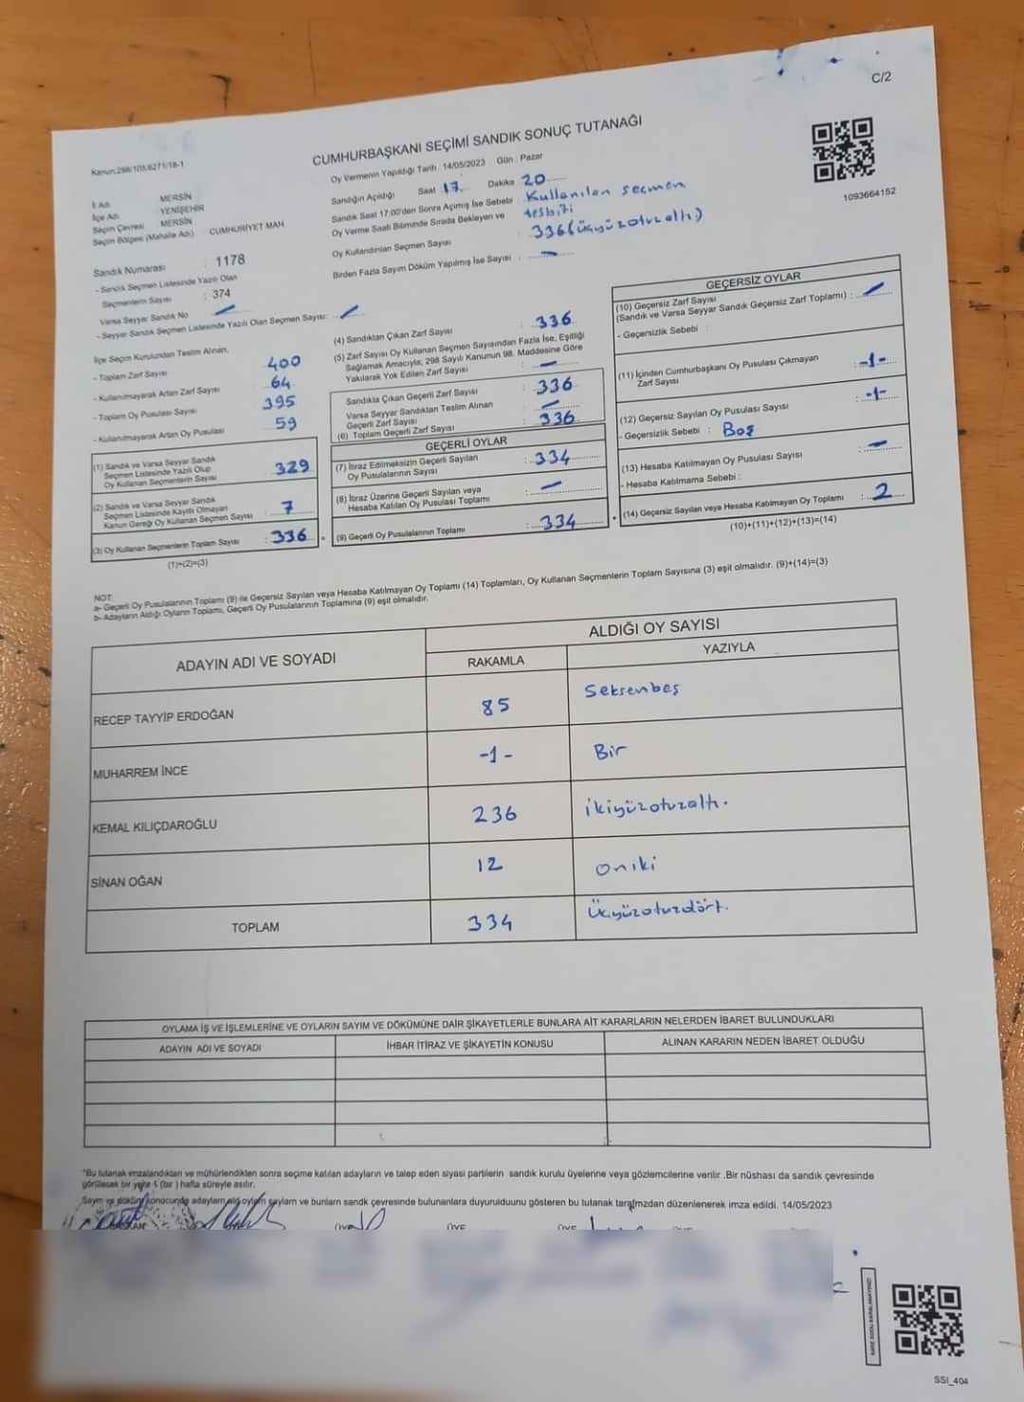 C/2
Kanun:298/103,6271/18-1
CUMHURBAŞKANI SEÇİMİ SANDIK SONUÇ TUTANAĞI
Oy Vermenin Yapıldığı Tarih : 14/05/2023 Gün : Pazar
1093664152
İl Adı : MERSİN
İlçe Adı : YENİŞEHİR
Seçim Çevresi : MERSİN
Seçim Bölgesi (Mahalle Adı) : CUMHURİYET MAH
Sandık Numarası : 1178
- Sandık Seçmen Listesinde Yazılı Olan
Seçmenlerin Sayısı : 374
Varsa Seyyar Sandık No
- Seyyar Sandık Seçmen Listesinde Yazılı Olan Seçmen Sayısı:
Sandığın Açıldığı Saat 17 Dakika 20
Sandık Saat 17:00'den Sonra Açılmış İse Sebebi : Kullanılan seçmen
tesbiti
Oy Verme Saati Bitiminde Sırada Bekleyen ve
Oy Kullandırılan Seçmen Sayısı : 336 (üçyüzotuzaltı)
Birden Fazla Sayım Döküm Yapılmış İse Sayısı : –
İlçe Seçim Kurulundan Teslim Alınan,
- Toplam Zarf Sayısı : 400
- Kullanılmayarak Artan Zarf Sayısı : 64
- Toplam Oy Pusulası Sayısı : 395
- Kullanılmayarak Artan Oy Pusulası : 59
(1) Sandık ve Varsa Seyyar Sandık
Seçmen Listesinde Yazılı Olup
Oy Kullanan Seçmenlerin Sayısı : 329
(2) Sandık ve Varsa Seyyar Sandık
Seçmen Listesinde Kayıtlı Olmayan
Kanun Gereği Oy Kullanan Seçmen Sayısı : 7
(3) Oy Kullanan Seçmenlerin Toplam Sayısı : 336
(1)+(2)=(3)
(4) Sandıktan Çıkan Zarf Sayısı : 336
(5) Zarf Sayısı Oy Kullanan Seçmen Sayısından Fazla İse, Eşitliği
Sağlamak Amacıyla; 298 Sayılı Kanunun 98. Maddesine Göre
Yakılarak Yok Edilen Zarf Sayısı : –
Sandıkla Çıkan Geçerli Zarf Sayısı : 336
Varsa Seyyar Sandıktan Teslim Alınan
Geçerli Zarf Sayısı : –
(6) Toplam Geçerli Zarf Sayısı : 336
GEÇERLİ OYLAR
(7) İtiraz Edilmeksizin Geçerli Sayılan
Oy Pusulalarının Sayısı : 334
(8) İtiraz Üzerine Geçerli Sayılan veya
Hesaba Katılan Oy Pusulası Toplamı : –
(9) Geçerli Oy Pusulalarının Toplamı : 334
GEÇERSİZ OYLAR
(10) Geçersiz Zarf Sayısı
(Sandık ve Varsa Seyyar Sandık Geçersiz Zarf Toplamı) :
- Geçersizlik Sebebi :
(11) İçinden Cumhurbaşkanı Oy Pusulası Çıkmayan
Zarf Sayısı : -1-
(12) Geçersiz Sayılan Oy Pusulası Sayısı : -1-
- Geçersizlik Sebebi : Boş
(13) Hesaba Katılmayan Oy Pusulası Sayısı : –
- Hesaba Katılmama Sebebi :
(14) Geçersiz Sayılan veya Hesaba Katılmayan Oy Toplamı : 2
(10)+(11)+(12)+(13)=(14)
NOT:
a- Geçerli Oy Pusulalarının Toplamı (9) ile Geçersiz Sayılan veya Hesaba Katılmayan Oy Toplamı (14) Toplamları, Oy Kullanan Seçmenlerin Toplam Sayısına (3) eşit olmalıdır. (9)+(14)=(3)
b- Adayların Aldığı Oyların Toplamı, Geçerli Oy Pusulalarının Toplamına (9) eşit olmalıdır.
ADAYIN ADI VE SOYADI ALDIĞI OY SAYISI
RAKAMLA YAZIYLA
RECEP TAYYİP ERDOĞAN 85 Seksenbeş
MUHARREM İNCE -1- Bir
KEMAL KILIÇDAROĞLU 236 ikiyüzotuzaltı.
SİNAN OĞAN 12 oniki
TOPLAM 334 Üçyüzotuzdört.
OYLAMA İŞ VE İŞLEMLERİNE VE OYLARIN SAYIM VE DÖKÜMÜNE DAİR ŞİKAYETLERLE BUNLARA AİT KARARLARIN NELERDEN İBARET BULUNDUKLARI
ADAYIN ADI VE SOYADI İHBAR İTİRAZ VE ŞİKAYETİN KONUSU ALINAN KARARIN NEDEN İBARET OLDUĞU
"Bu tutanak imzalandıktan ve mühürlendikten sonra seçime katılan adayların ve talep eden siyasi partilerin sandık kurulu üyelerine veya gözlemcilerine verilir .Bir nüshası da sandık çevresinde
görülecek bir yere 1 (bir ) hafta süreyle asılır.
Sayım ve döküm sonucunda adayların aldığı oyların sayıları ve bunların sandık çevresinde bulunanlara duyurulduunu gösteren bu tutanak tarafımızdan düzenlenerek imza edildi. 14/05/2023
ÜYE ÜYE
SSI_404